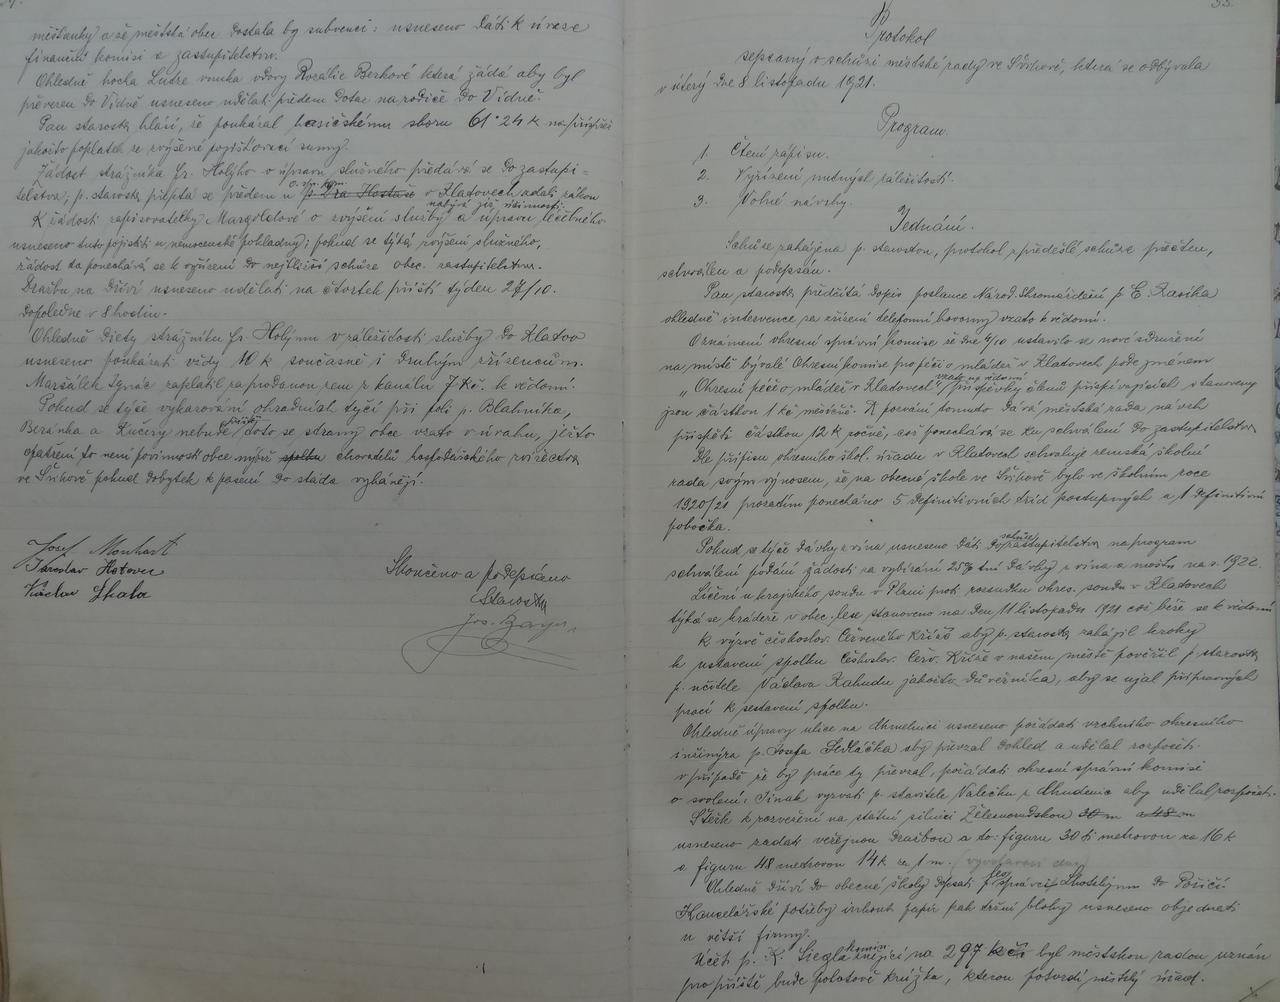 měšťanky a že městská obec dostala by subvenci: usneseno dáti k úvaze
finanční komisi a zastupitelstvu.
Ohledně hocha Lutze vnuka vdovy Rozálie Berkové která žádá aby byl
převezen do Vídně usneseno udělati předem dotaz na rodiče do Vídně.
Pan starosta hlásí, že poukázal hasičskému sboru 61·24 K na
jakožto poplatek ze zvýšené pojišťovací sumy.
Žádost strážníka Fr. Holýho o úpravu služného předává se do zastupi-
telstva, p. starosta přeptá se předem u p. Dra Hostaše v Klatovech zdali zákon
nabývá již účinnosti.
K žádosti zapisovatelky Margoldové o zvýšení služby a úpravu léčebného
usneseno tuto pojistiti u nemocenské pokladny; pokud se týká zvýšení služného,
žádost ta ponechává se k vyřízení do nejbližší schůze obec. zastupitelstva.
Dražbu na dříví usneseno udělati na čtvrtek příští týden 27/10.
dopoledne v 8 hodin.
Ohledně diety strážníku Fr. Holýmu v záležitosti služby do Klatov
usneseno poukázati vždy 10 K současně i druhým zřízencům.
Maršálek Ignác zaplatil za prodanou zem z kanálu 7 Kč. k vědomí.
Pokud se týče vykazování ohradních tyčí při poli p. Blahníka,
Beránka a Kučery nebude toto se strany obce vzato v úvahu, ježto
opatření to není povinností obce nýbrž spolku chovatelů hospodářského zvířectva
ve Švihově pokud dobytek k pasení do stáda vyhánějí.
Josef Monhart
Jaroslav Hotovec
Václav Skala
Skončeno a podepsáno
Starosta
Jos.
Protokol
sepsaný o schůzi městské rady ve Švihově, která se odbývala
v úterý dne 8 listopadu 1921.
Program.
1. Čtení zápisu.
2. Vyřízení nutných záležitostí.
3. Volné návrhy.
Jednání.
Schůze zahájena p. starostou, protokol z předešlé schůze přečten,
schválen a podepsán.
Pan starosta předčítá dopis poslance Národ. Shromáždění p. E. Rasika
ohledně intervence za zřízení telefonní hovorny vzato k vědomí.
Oznámení okresní správní komise že dne 4/10 ustavilo se nové sdružení
na místě bývalé Okresní komise pro péči o mládež v Klatovech pode jménem
„Okresní péče o mládež v Klatovech" vzato na vědomí příspěvky členů přispívajících stanoveny
jsou částkou 1 Kč měsíčně. K pozvání tomuto dává městská rada návrh
přispěti částkou 12 K ročně, což ponechává se ku schválení do zastupitelstva
Dle přípisu okresního škol. úřadu v Klatovech schvaluje zemská školní
rada svým výnosem, že na obecné škole ve Švihově bylo ve školním roce
1920/21 prozatím ponecháno 5 definitivních tříd postupných a 1 definitivní
pobočka.
Pokud se týče dávky z vína usneseno dáti do schůze zastupitelstva na program
schválení podání žádosti za vybírání 25% tní dávky z vína a moštu na r. 1922.
Líčení u krajského soudu v Plzni proti rozsudku okres. soudu v Klatovech
týká se krádeže v obec. lese stanoveno na den 11 listopadu 1921 což béře se k vědomí
K výzvě českoslov. Červeného Kříže aby p. starosta zahájil kroky
k ustavení spolku Českoslov. Červ. Kříže v našem městě pověřil p. starosta
p. učitele Václava Kahudu jakožto důvěrníka, aby se ujal přípravných
prací k sestavení spolku.
Ohledně úpravy ulice na Chmelnici usneseno požádati vrchního okresního
inžinýra p. Josefa Sedláčka aby převzal dohled a udělal rozpočet.
v případě že by práce ty převzal, požádati okresní správní komisi
o svolení: Jinak vyzvati p. stavitele Valečku z Chudenic aby udělal rozpočet.
Štěrk k rozvezení na státní silnici Železnorudskou 30 m a 48 m
usneseno zadati veřejnou dražbou a to: figuru 30 ti metrovou za 16 K
a figuru 48 metrovou 14 K za 1 m. (vyvolávací ceny)
Ohledně dříví do obecné školy dopsati p. správci Lhotskýmu do Poříčí
Kancelářské potřeby inkoust papír pak tržní bloky usneseno objednati
u větší firmy.
Účet p. K. Siegla znějící na 297 Kč byl městskou radou uznán
pro příště bude polotové knížka, kterou potvrdí městský úřad.